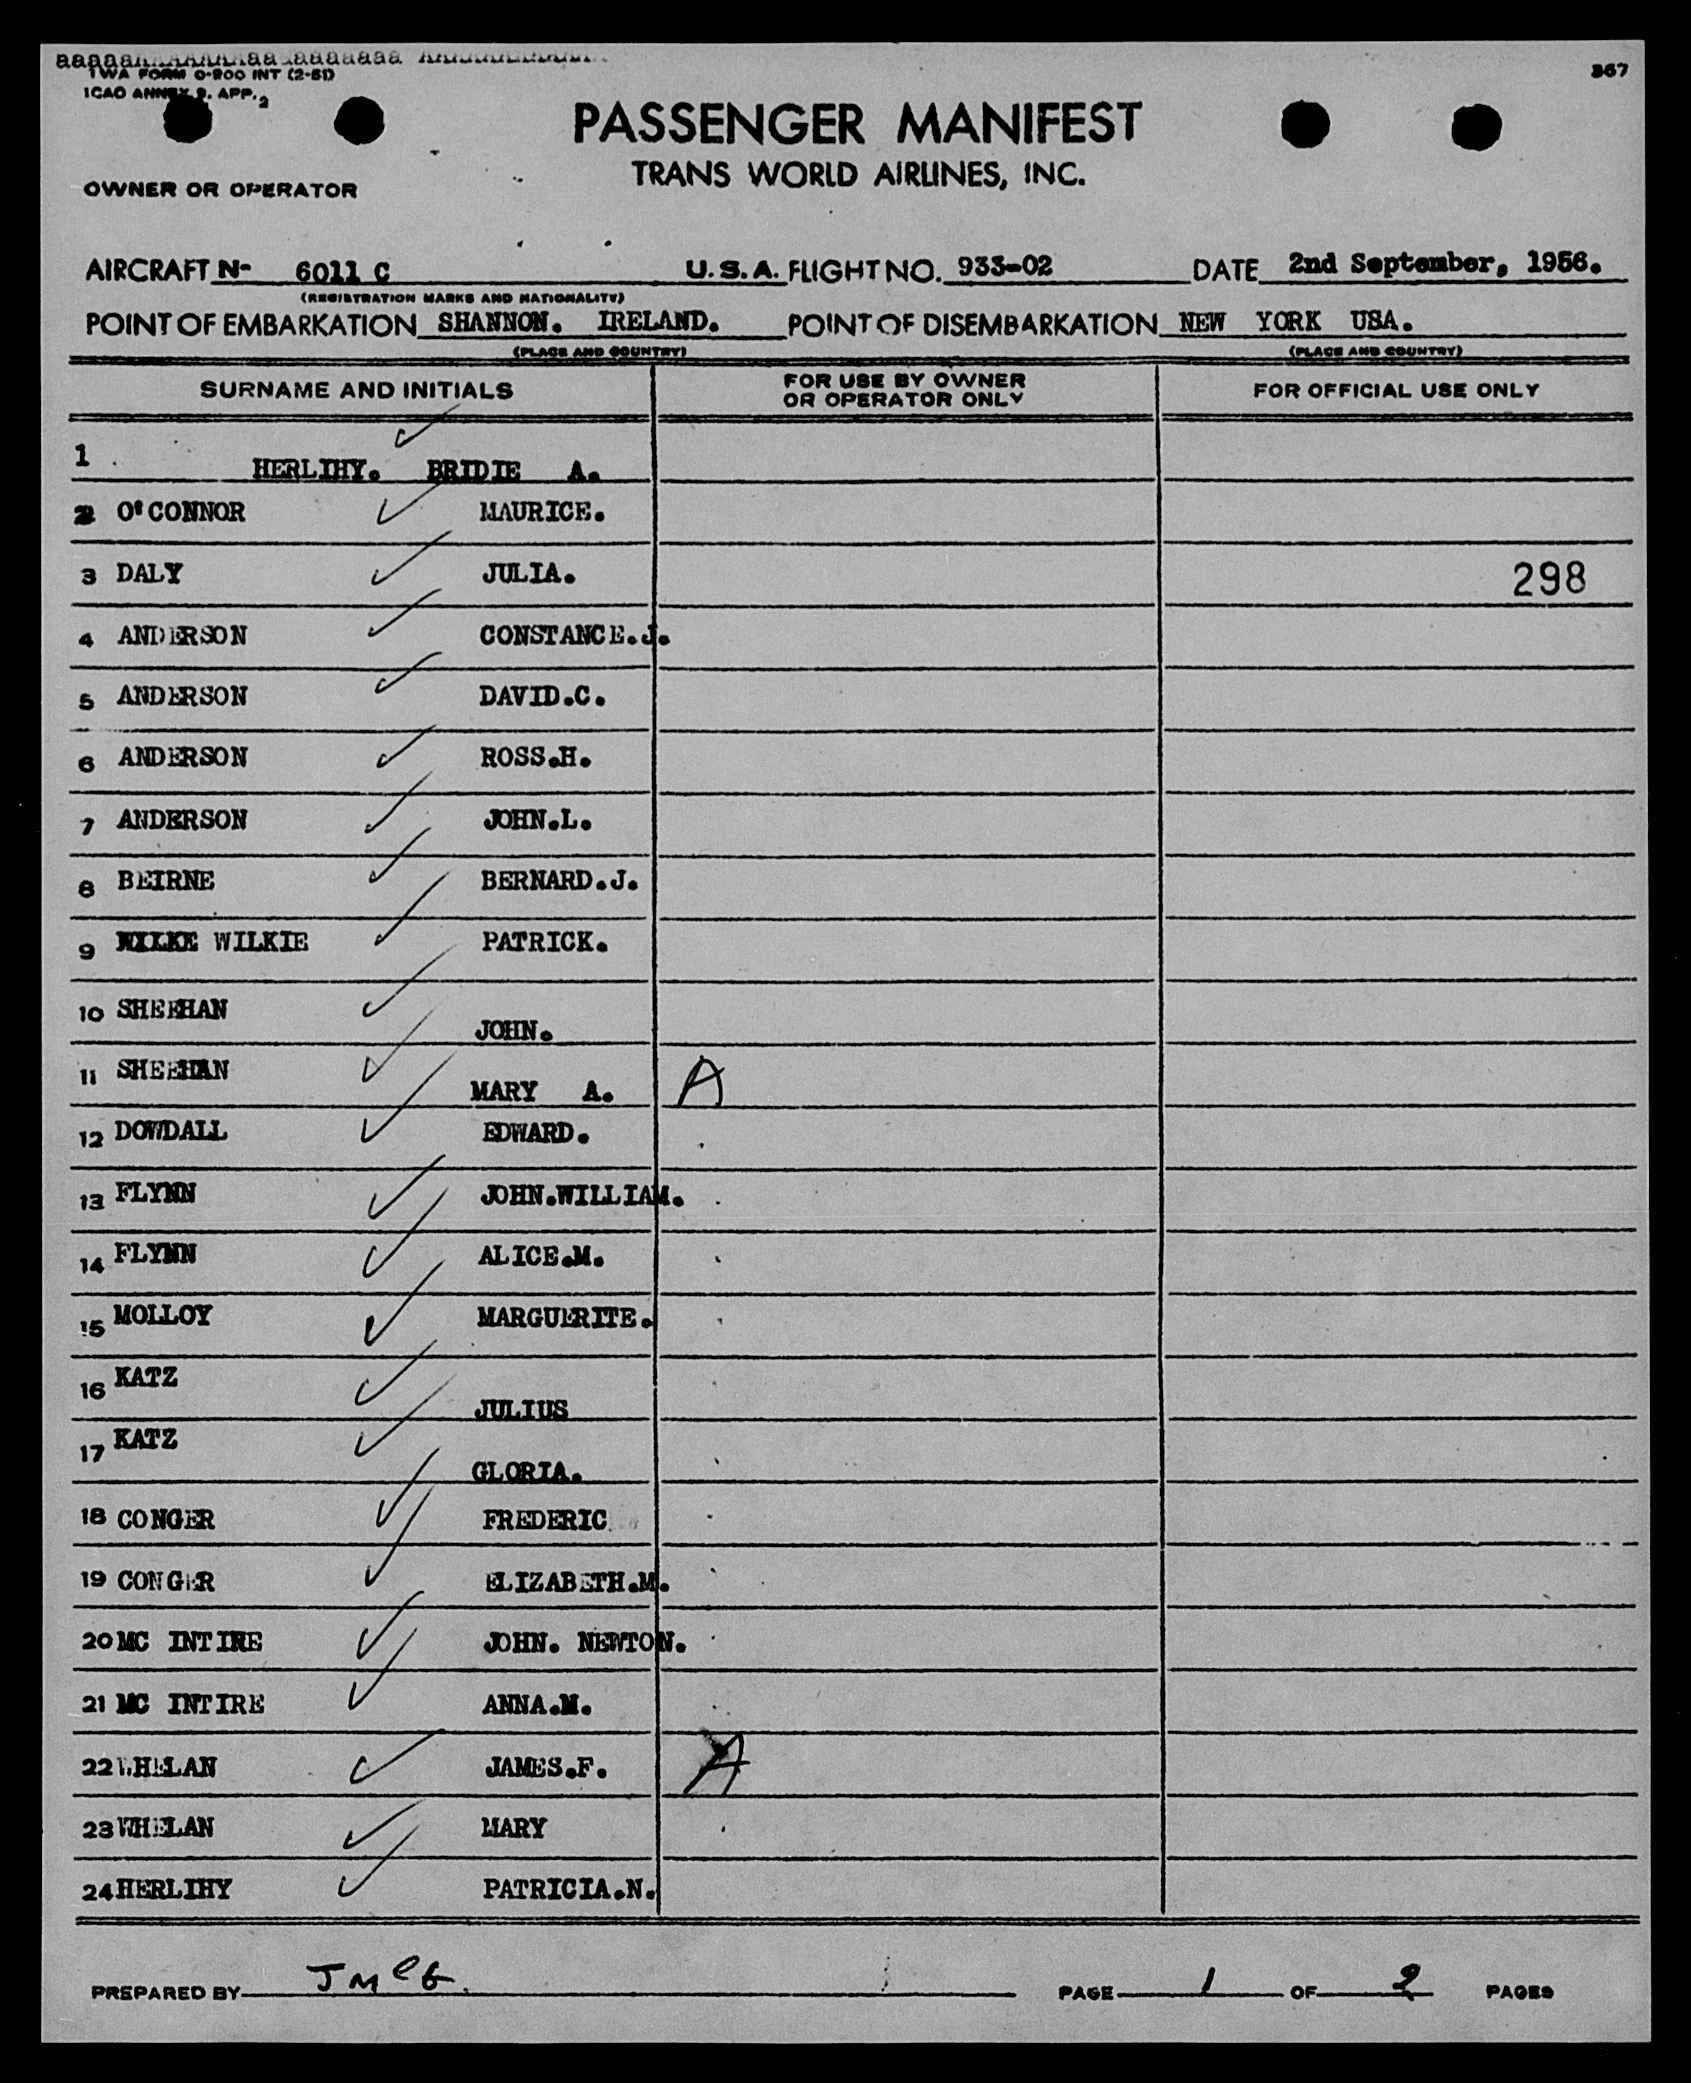 TWA FORM O-200 INT (2-51)
367
ICAO ANNEX 9. APP. 2
PASSENGER MANIFEST
TRANS WORLD AIRLINES, INC.
OWNER OR OPERATOR
AIRCRAFT N- 6011 C U.S.A. FLIGHT NO. 933-02 DATE 2nd September, 1956.
(REGISTRATION MARKS AND NATIONALITY)
POINT OF EMBARKATION SHANNON. IRELAND. POINT OF DISEMBARKATION NEW YORK USA.
(PLACE AND COUNTRY) (PLACE AND COUNTRY)
SURNAME AND INITIALS FOR USE BY OWNER OR OPERATOR ONLY FOR OFFICIAL USE ONLY
1 HERLIHY. BRIDIE A.
2 O'CONNOR MAURICE.
3 DALY JULIA. 298
4 ANDERSON CONSTANCE.J.
5 ANDERSON DAVID.C.
6 ANDERSON ROSS.H.
7 ANDERSON JOHN.L.
8 BEIRNE BERNARD.J.
9 WILKIE PATRICK.
10 SHEEHAN JOHN.
11 SHEEHAN MARY A. A
12 DOWDALL EDWARD.
13 FLYNN JOHN.WILLIAM.
14 FLYNN ALICE.M.
15 MOLLOY MARGUERITE.
16 KATZ JULIUS
17 KATZ GLORIA.
18 CONGER FREDERIC
19 CONGER ELIZABETH.M.
20 MC INTIRE JOHN. NEWTON.
21 MC INTIRE ANNA.M.
22 WHELAN JAMES.F. A
23 WHELAN MARY
24 HERLIHY PATRICIA.N.
PREPARED BY J McG. PAGE 1 OF 2 PAGES